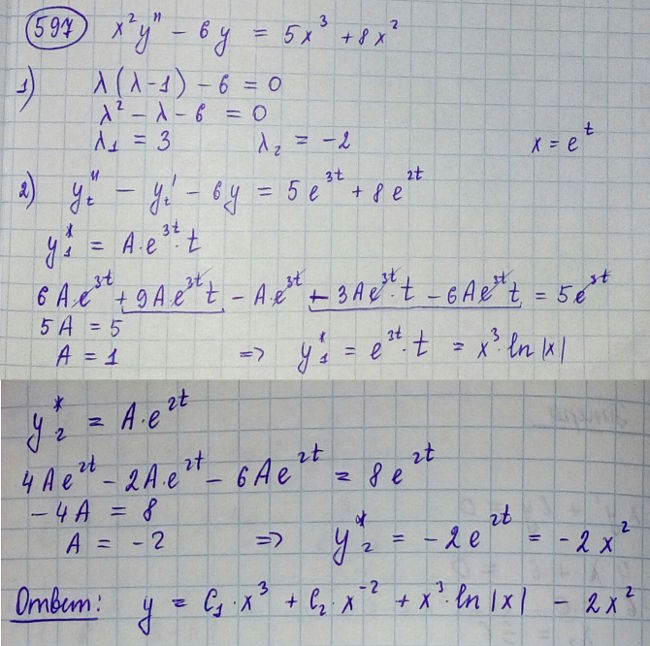 597 x²y'' - 6y = 5x³ + 8x²
1) λ(λ-1) - 6 = 0
λ² - λ - 6 = 0
λ₁ = 3 λ₂ = -2 x = eᵗ
2) yₜ'' - yₜ' - 6y = 5e³ᵗ + 8e²ᵗ
y₁* = A·e³ᵗ·t
6A·e³ᵗ + 9A·e³ᵗt - A·e³ᵗ - 3Ae³ᵗ·t - 6Ae³ᵗt = 5e³ᵗ
5A = 5
A = 1 => y₁* = e³ᵗ·t = x³·ln|x|
y₂* = A·e²ᵗ
4Ae²ᵗ - 2A·e²ᵗ - 6Ae²ᵗ = 8e²ᵗ
-4A = 8
A = -2 => y₂* = -2e²ᵗ = -2x²
Ответ: y = C₁·x³ + C₂·x⁻² + x³·ln|x| - 2x²